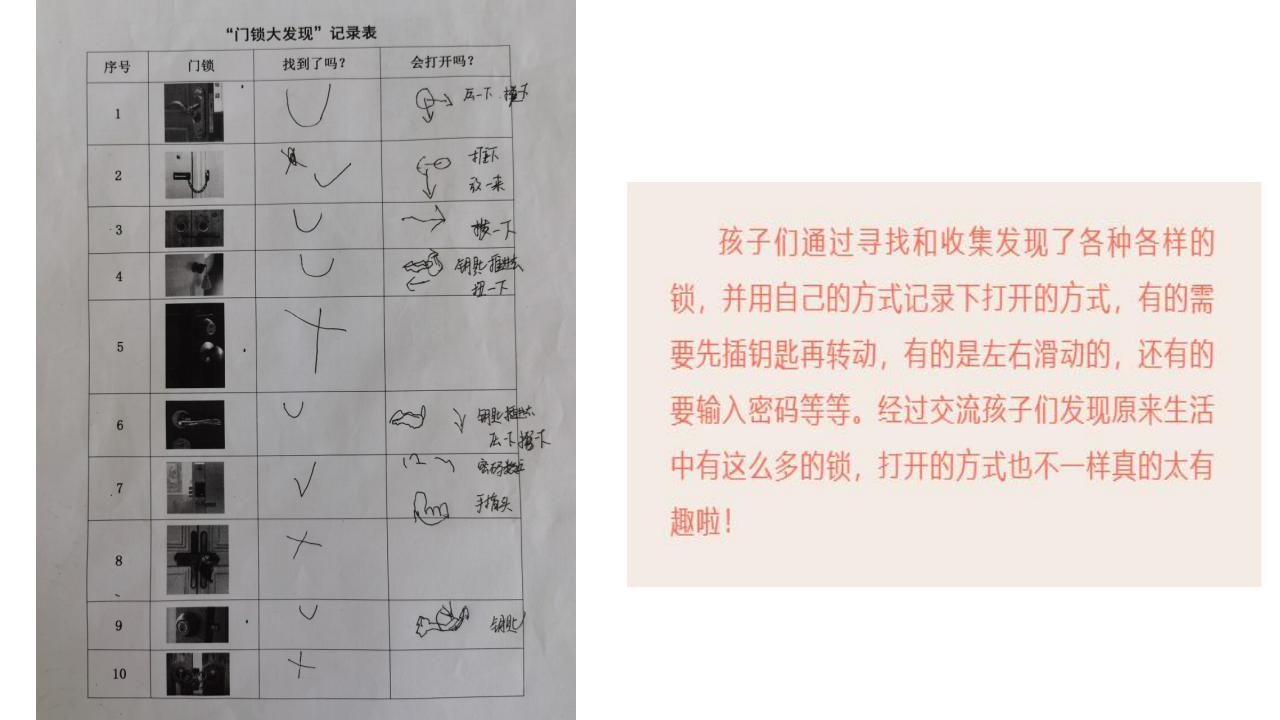 “门锁大发现”记录表
序号 门锁 找到了吗？ 会打开吗？
1 压一下
2
3 拨一下
4 钥匙插进去
扭一下
5
6 钥匙插进去
压一下
7 密码
手指头
8
9 钥匙
10
孩子们通过寻找和收集发现了各种各样的
锁，并用自己的方式记录下打开的方式，有的需
要先插钥匙再转动，有的是左右滑动的，还有的
要输入密码等等。经过交流孩子们发现原来生活
中有这么多的锁，打开的方式也不一样真的太有
趣啦！